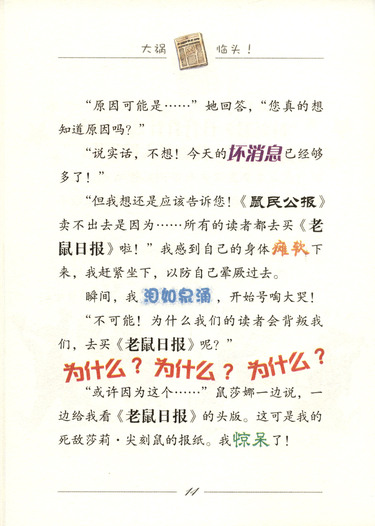 大祸临头！
“原因可能是……”她回答，“您真的想
知道原因吗？”
“说实话，不想！今天的坏消息已经够
多了！”
“但我想还是应该告诉您！《鼠民公报》
卖不出去是因为……所有的读者都去买《老
鼠日报》啦！”我感到自己的身体瘫软下
来，我赶紧坐下，以防自己晕厥过去。
瞬间，我泪如泉涌，开始号啕大哭！
“不可能！为什么我们的读者会背叛我
们，去买《老鼠日报》呢？”
为什么？为什么？为什么？
“或许因为这个……”鼠莎娜一边说，一
边给我看《老鼠日报》的头版。这可是我的
死敌莎莉·尖刻鼠的报纸。我惊呆了！
14